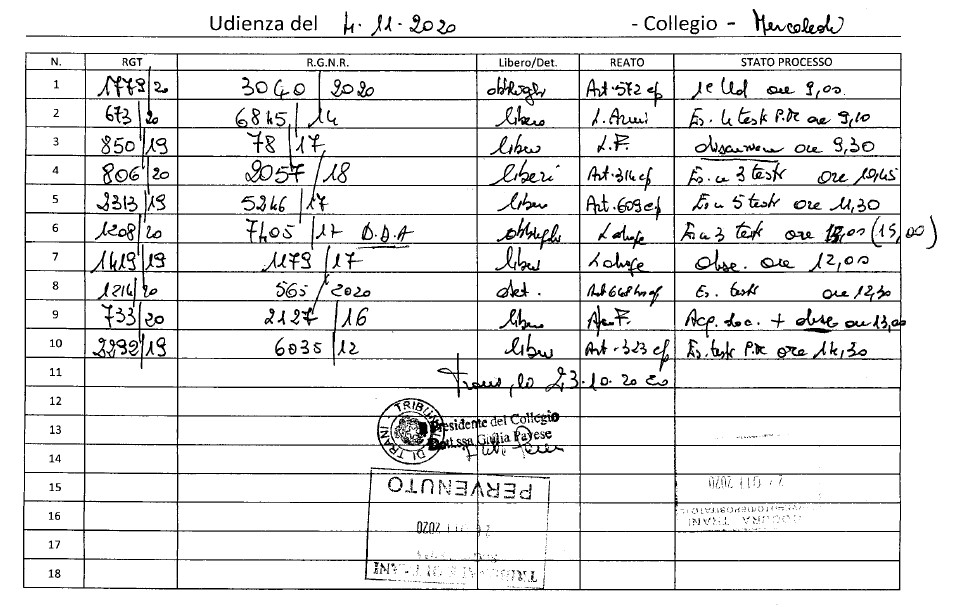 Udienza del 4.11.2020 - Collegio - Mercoledì
N. RGT R.G.N.R. Libero/Det. REATO STATO PROCESSO
1 1779/20 3040/2020 obblighi Art. 572 cp 1e Ud ore 9,00
2 673/20 6845/14 libero L. Armi Es. 4 testi P.M. ore 9,10
3 850/19 78/17 libero L.F. discussione ore 9,30
4 806/20 2057/18 liberi Art. 314 cp Es. 3 testi ore 10,45
5 2313/19 5246/17 libero Art. 609 cp Es. 5 testi ore 11,30
6 1208/20 7405/17 D.D.A obblighi L. droga Es. 3 testi ore (15,00)
7 1419/19 1179/17 libero L. droga disc. ore 12,00
8 1214/20 565/2020 det. Art. Es. testi ore 12,30
9 733/20 2127/16 libero Acq. doc. + disc ore 13,00
10 2292/19 6035/12 libero Art. 323 cp Es. testi P.M. ore 14,30
11 Trani, lo 23.10.2020
12
13 TRIBUNALE DI TRANI
Presidente del Collegio
Dott.ssa Giulia Pavese
14
15 PERVENUTO
16 2020
PROCURA TRANI
17
TRIBUNALE DI TRANI
18